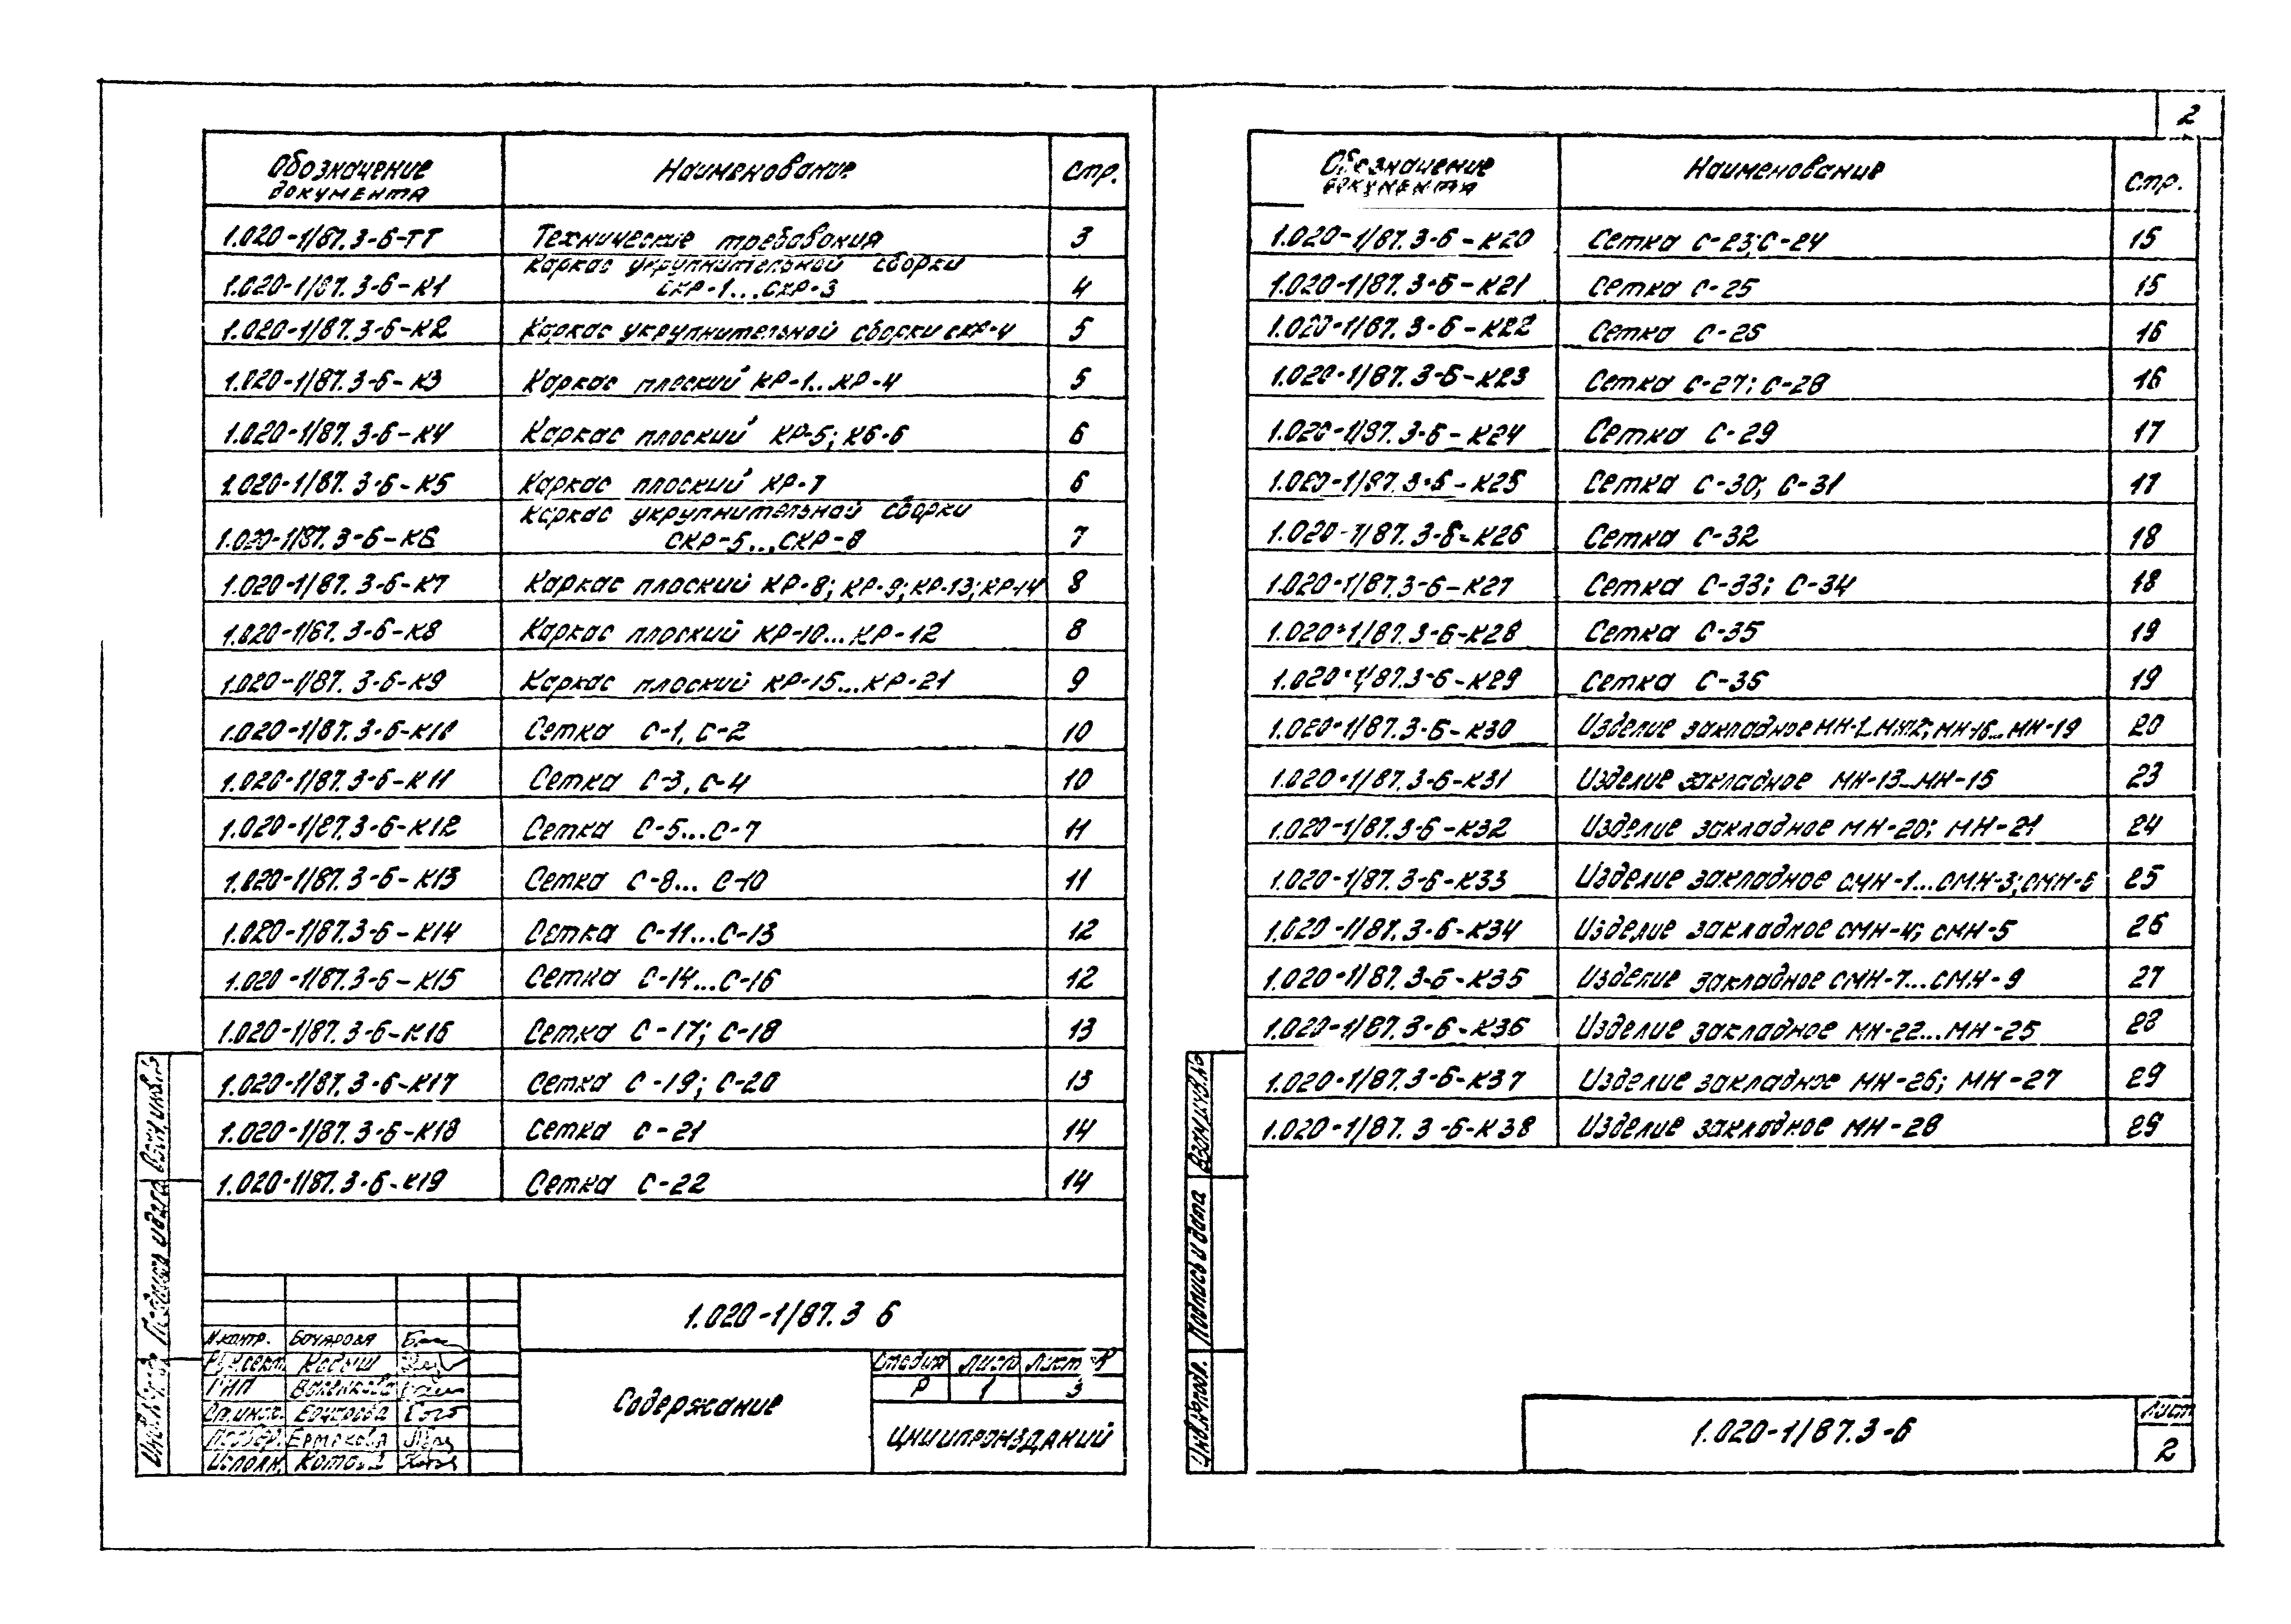 2
Обозначение документа Наименование Стр.
1.020-1/87.3-6-ТТ Технические требования 3
1.020-1/87.3-6-К1 Каркас укрупнительной сборки СКР-1...СКР-3 4
1.020-1/87.3-6-К2 Каркас укрупнительной сборки СКР-4 5
1.020-1/87.3-6-К3 Каркас плоский КР-1...КР-4 5
1.020-1/87.3-6-К4 Каркас плоский КР-5; К6-6 6
1.020-1/87.3-6-К5 Каркас плоский КР-7 6
1.020-1/87.3-6-К6 Каркас укрупнительной сборки СКР-5...СКР-8 7
1.020-1/87.3-6-К7 Каркас плоский КР-8; КР-9; КР-13; КР-14 8
1.020-1/87.3-6-К8 Каркас плоский КР-10...КР-12 8
1.020-1/87.3-6-К9 Каркас плоский КР-15...КР-21 9
1.020-1/87.3-6-К10 Сетка С-1, С-2 10
1.020-1/87.3-6-К11 Сетка С-3, С-4 10
1.020-1/87.3-6-К12 Сетка С-5...С-7 11
1.020-1/87.3-6-К13 Сетка С-8...С-10 11
1.020-1/87.3-6-К14 Сетка С-11...С-13 12
1.020-1/87.3-6-К15 Сетка С-14...С-16 12
1.020-1/87.3-6-К16 Сетка С-17; С-18 13
1.020-1/87.3-6-К17 Сетка С-19; С-20 13
1.020-1/87.3-6-К18 Сетка С-21 14
1.020-1/87.3-6-К19 Сетка С-22 14
1.020-1/87.3 6
Н.контр. Бочарова
Кодыш
ГИП
Ермакова
Исполн. Котова
Содержание
Стадия Лист Листов
Р 1 3
ЦНИИПРОМЗДАНИЙ
Подпись и дата
Обозначение документа Наименование Стр.
1.020-1/87.3-6-К20 Сетка С-23; С-24 15
1.020-1/87.3-6-К21 Сетка С-25 15
1.020-1/87.3-6-К22 Сетка С-26 16
1.020-1/87.3-6-К23 Сетка С-27; С-28 16
1.020-1/87.3-6-К24 Сетка С-29 17
1.020-1/87.3-6-К25 Сетка С-30; С-31 17
1.020-1/87.3-6-К26 Сетка С-32 18
1.020-1/87.3-6-К27 Сетка С-33; С-34 18
1.020-1/87.3-6-К28 Сетка С-35 19
1.020-1/87.3-6-К29 Сетка С-36 19
1.020-1/87.3-6-К30 Изделие закладное МН-1...МН-12; МН-16...МН-19 20
1.020-1/87.3-6-К31 Изделие закладное МН-13...МН-15 23
1.020-1/87.3-6-К32 Изделие закладное МН-20; МН-21 24
1.020-1/87.3-6-К33 Изделие закладное СМН-1...СМН-3; СМН-6 25
1.020-1/87.3-6-К34 Изделие закладное СМН-4; СМН-5 26
1.020-1/87.3-6-К35 Изделие закладное СМН-7...СМН-9 27
1.020-1/87.3-6-К36 Изделие закладное МН-22...МН-25 28
1.020-1/87.3-6-К37 Изделие закладное МН-26; МН-27 29
1.020-1/87.3-6-К38 Изделие закладное МН-28 29
Взам.инв.№
Подпись и дата
Инв.№подл.
1.020-1/87.3-6
Лист
2